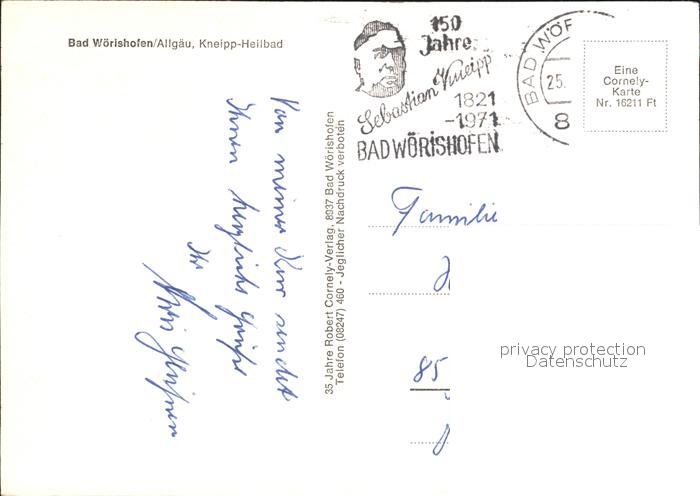 Bad Wörishofen/Allgäu, Kneipp-Heilbad
Von meiner Kur sendet
Ihnen herzliche Grüße
Ihr
35 Jahre Robert Cornely-Verlag, 8937 Bad Wörishofen
Telefon (08247) 460 - Jeglicher Nachdruck verboten
150
Jahre
Sebastian Kneipp
1821
-1971
BAD WÖRISHOFEN
BAD WÖF
25.
8
Eine
Cornely-
Karte
Nr. 16211 Ft
Familie
85
privacy protection
Datenschutz